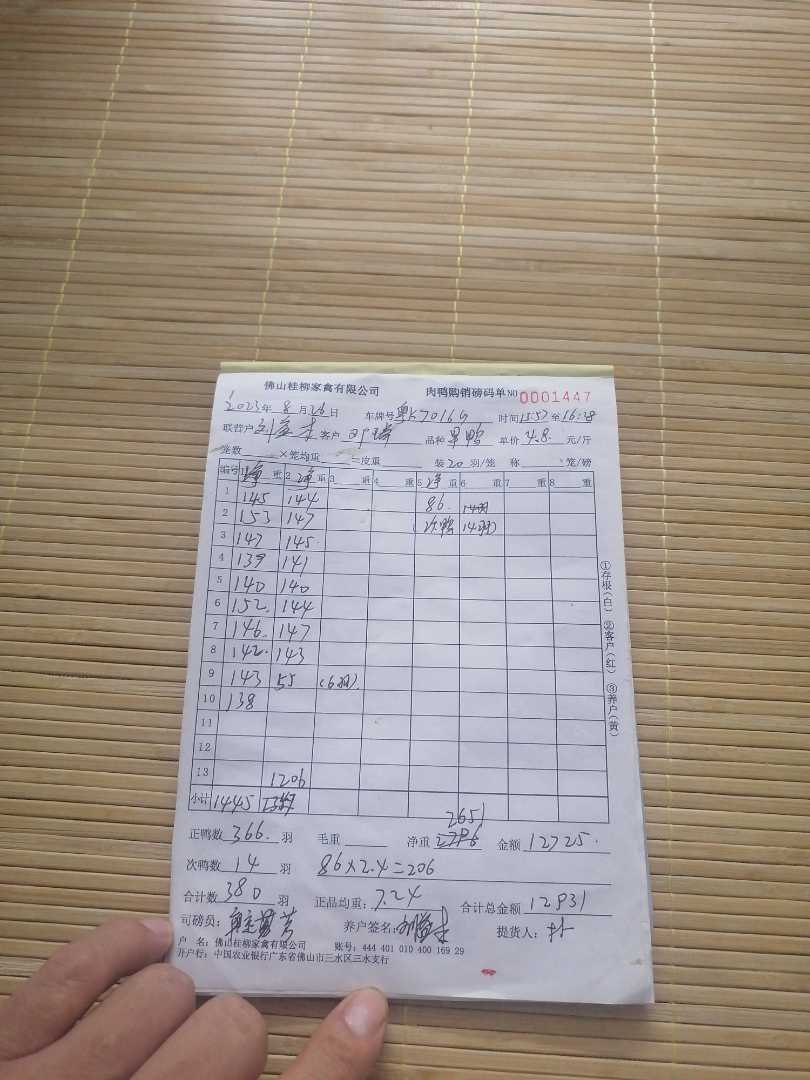 佛山桂柳家禽有限公司 肉鸭购销磅码单 NO 0001447
2023年 8月26日 车牌号 粤K7016G 时间 15:57至16:28
联营户 客户 品种 果鸭 单价 4.8 元/斤
笼数 ×笼均重 =皮重 装20羽/笼 称 笼/磅
编号 1净重 2净重 3 重 4 重 5净重 6 重 7 重 8 重
1 145 144 86. 14羽
2 153 147 (次鸭 14羽)
3 147 145
4 139 141
5 140 140
6 152 144
7 146 147
8 142 143
9 143 55 (6羽)
10 138
11
12
13 1206
小计 1445
2651
正鸭数 366 羽 毛重 净重 金额 12725
次鸭数 14 羽 86×2.4=206
合计数 380 羽 正品均重: 7.24 合计总金额 12931
司磅员: 养户签名: 提货人:
户 名: 佛山桂柳家禽有限公司 账号: 444 401 010 400 169 29
开户行: 中国农业银行广东省佛山市三水区三水支行
①存根(白) ②客户(红) ③养户(黄)